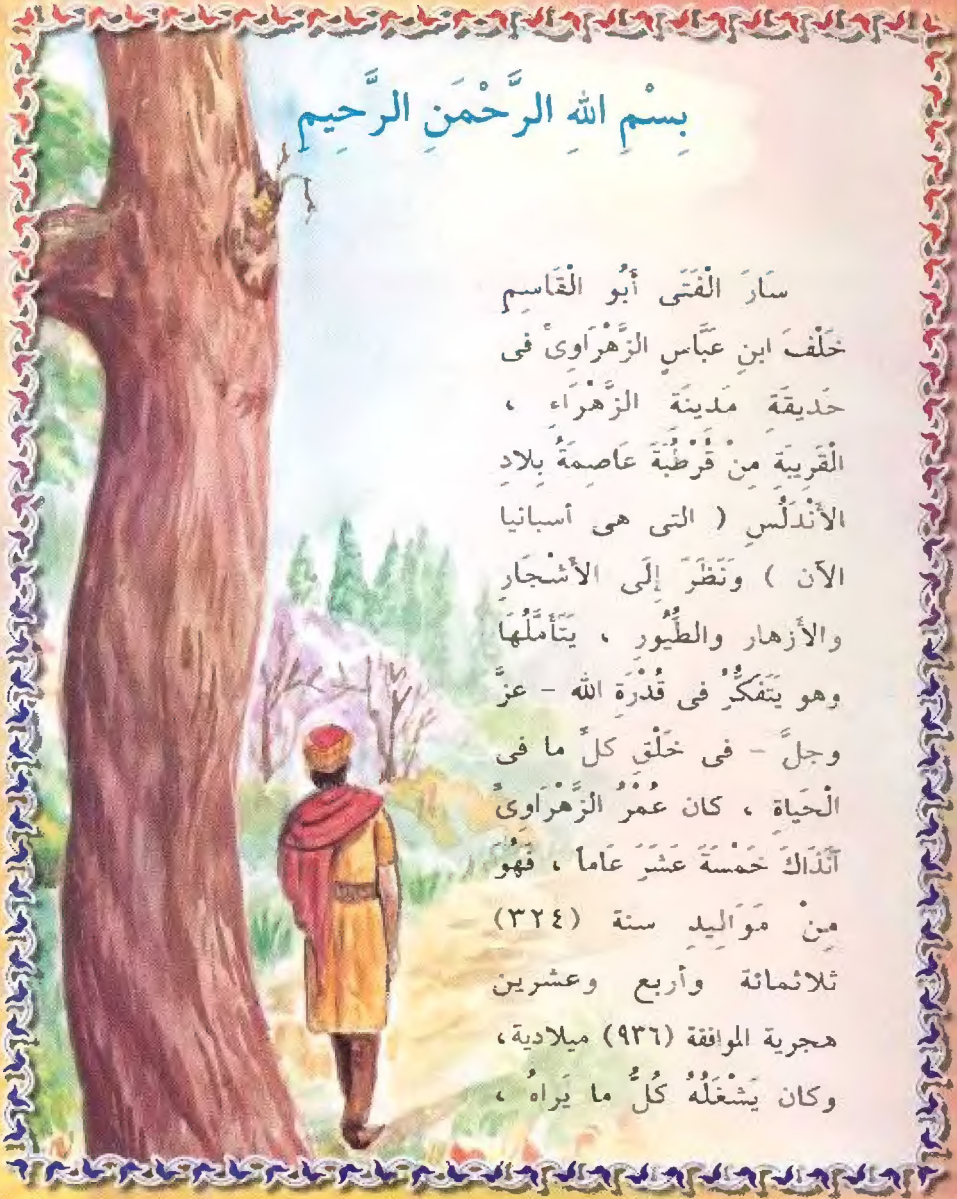 بِسْمِ اللهِ الرَّحْمَنِ الرَّحِيمِ
سَارَ الْفَتَى أَبُو الْقَاسِمِ
خَلْفَ ابنِ عَبَّاسٍ الزَّهْرَاوِىُّ فى
حَدِيقَةِ مَدِينَةِ الزَّهْرَاءِ ،
الْقَرِيبَةِ مِنْ قُرْطُبَةَ عَاصِمَةُ بِلادِ
الأَنْدَلُسِ ( التى هى أسبانيا
الآن ) وَنَظَرَ إِلَى الأَشْجَارِ
والأَزهار والطُّيُورِ ، يَتَأَمَّلُهَا
وهو يَتَفَكَّرُ فى قُدْرَةِ الله - عزَّ
وجلَّ - فى خَلْقِ كلِّ ما فى
الْحَيَاةِ ، كان عُمْرُ الزَّهْرَاوِىُّ
آنَذَاكَ خَمْسَةَ عَشَرَ عَاماً ، فَهُوَ
مِنْ مَوَالِيدِ سنة (٣٢٤)
ثلاثمائة وأربع وعشرين
هجرية الموافقة (٩٣٦) ميلادية،
وكان يَشْغَلُهُ كُلُّ ما يَراهُ ،